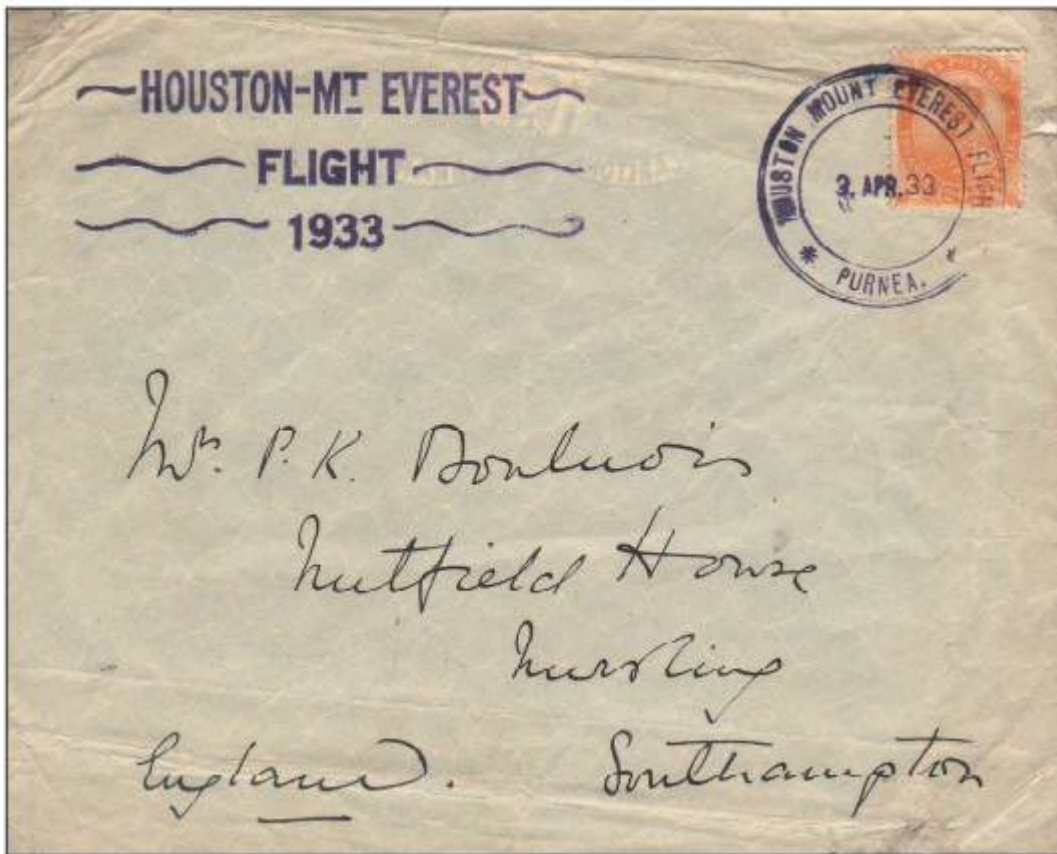 HOUSTON-MT EVEREST
FLIGHT
1933
HOUSTON MOUNT EVEREST FLIGHT
3. APR. 33
* PURNEA. *
P. K.
Nutfield House
Nursling
England. Southampton